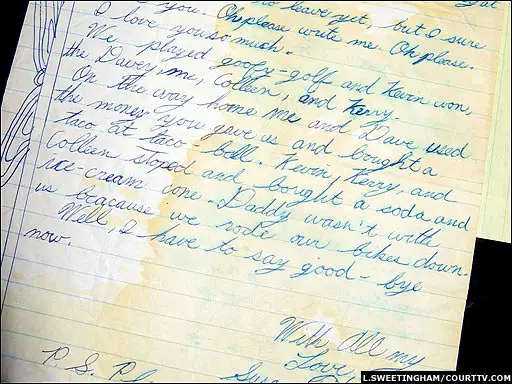 you. Oh please write me. Oh please.
leave yet, but I sure
I love you so much.
We played goofy-golf and Kevin won,
the Davey, me, Colleen, and Kerry.
On the way home me and Dave used
the money you gave us and bought a
taco at taco bell. Kevin, Kerry, and
Colleen stoped and bought a soda and
ice-cream cone. Daddy wasn't with
us bracause we rode our bikes down.
Well, I have to say good-bye
now.
With All my
Love
P. S. Pl
L.SWEETINGHAM/COURTTV.COM